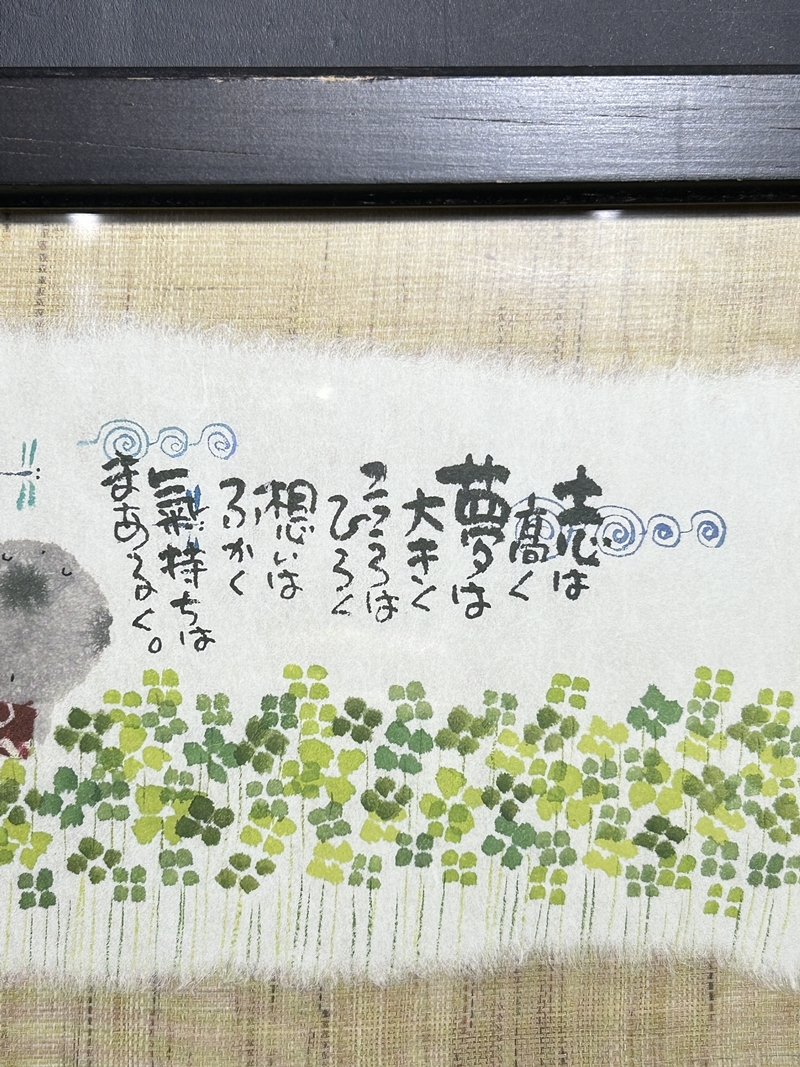 志は
高く
夢は
大きく
こころは
ひろく
想いは
ふかく
氣持ちは
まあるく。